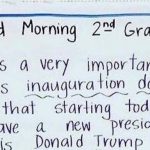 d Morning 2nd Gra
s a very importan
s inauguration da
that starting tod
ave a new presid
is Donald Trump